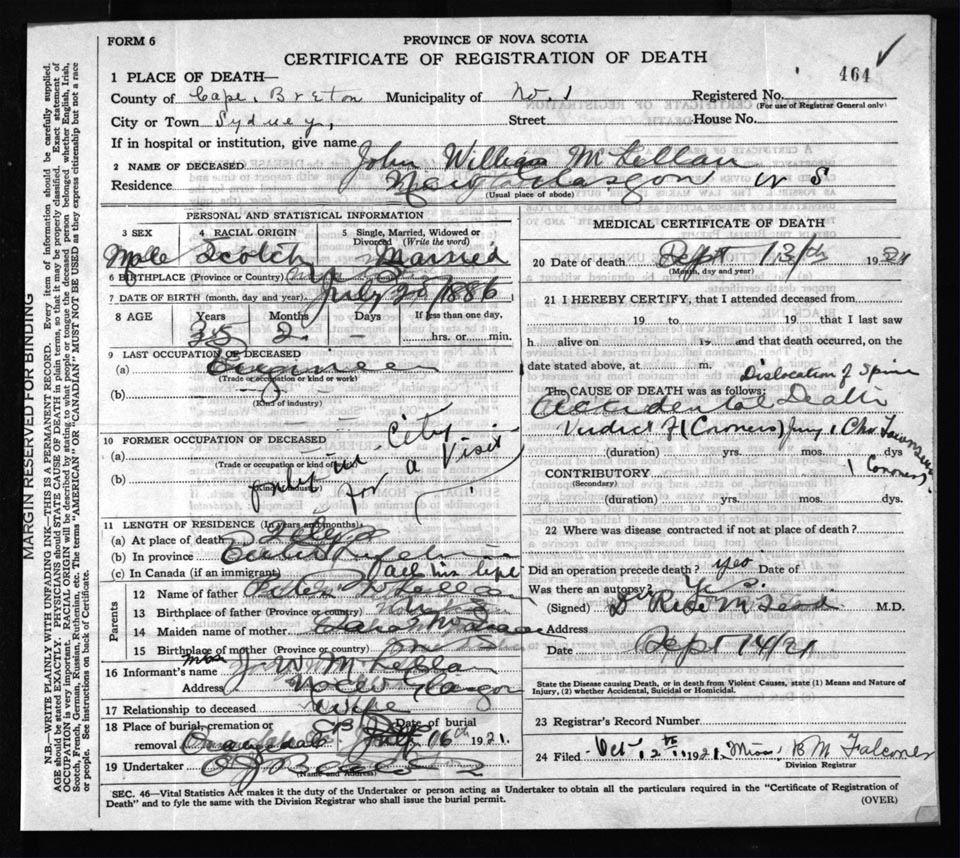 FORM 6
PROVINCE OF NOVA SCOTIA
CERTIFICATE OF REGISTRATION OF DEATH
464
1 PLACE OF DEATH—
County of Cape Breton Municipality of No. 1 Registered No.
(For use of Registrar General only)
City or Town Sydney, Street House No.
If in hospital or institution, give name
2 NAME OF DECEASED John William McLellan
Residence New Glasgow N S
(Usual place of abode)
PERSONAL AND STATISTICAL INFORMATION
3 SEX 4 RACIAL ORIGIN 5 Single, Married, Widowed or Divorced (Write the word)
Male Scotch Married
6 BIRTHPLACE (Province or Country)
7 DATE OF BIRTH (month, day and year) July 25 1886
8 AGE Years Months Days If less than one day,
35 2 — hrs. or min.
9 LAST OCCUPATION OF DECEASED
(a) Engineer
(Trade or occupation or kind or work)
(b)
(Kind of industry)
10 FORMER OCCUPATION OF DECEASED
(a)
(Trade or occupation or kind of
(b)
(Kind of industry)
only in City
for a Visit
11 LENGTH OF RESIDENCE (In years and months)
(a) At place of death
(b) In province
(c) In Canada (if an immigrant) all his life
Parents
12 Name of father
13 Birthplace of father (Province or country)
14 Maiden name of mother
15 Birthplace of mother (Province or country)
16 Informant's name Mrs J. W. McLellan
Address New Glasgow
17 Relationship to deceased Wife
18 Place of burial, cremation or removal Date of burial
16th 1921.
19 Undertaker
(Name and Address)
MEDICAL CERTIFICATE OF DEATH
20 Date of death Sept 13th 1921
(Month, day and year)
21 I HEREBY CERTIFY, that I attended deceased from
19 to 19 that I last saw
h alive on 19 and that death occurred, on
date stated above, at m.
Dislocation of Spine
The CAUSE OF DEATH was as follows:
Accidental Death
Verdict of (Coroners) Jury
(duration) yrs. mos. dys
Coroner
CONTRIBUTORY
(Secondary)
(duration) yrs. mos. dys.
22 Where was disease contracted if not at place of death?
Did an operation precede death? yes Date of
Was there an autopsy? Yes.
(Signed) M.D.
Address
Date Sept 14/21
State the Disease causing Death, or in death from Violent Causes, state (1) Means and Nature of
Injury, (2) whether Accidental, Suicidal or Homicidal.
23 Registrar's Record Number
24 Filed Oct. 1921. Miss B M Falconer
Division Registrar
SEC. 46—Vital Statistics Act makes it the duty of the Undertaker or person acting as Undertaker to obtain all the particulars required in the "Certificate of Registration of
Death" and to fyle the same with the Division Registrar who shall issue the burial permit. (OVER)
MARGIN RESERVED FOR BINDING
N.B.—WRITE PLAINLY WITH UNFADING INK—THIS IS A PERMANENT RECORD. Every item of information should be carefully supplied.
AGE should be stated EXACTLY. PHYSICIANS should STATE CAUSE OF DEATH in plain terms, so that it may be properly classified. Exact statement of
OCCUPATION is very important. RACIAL ORIGIN will be described by stating to what people or tongue the deceased person belonged whether English, Irish,
Scotch, French, German, Russian, Ruthenian, etc. The terms "AMERICAN" or "CANADIAN" MUST NOT BE USED as they express citizenship but not a race
or people. See instructions on back of Certificate.